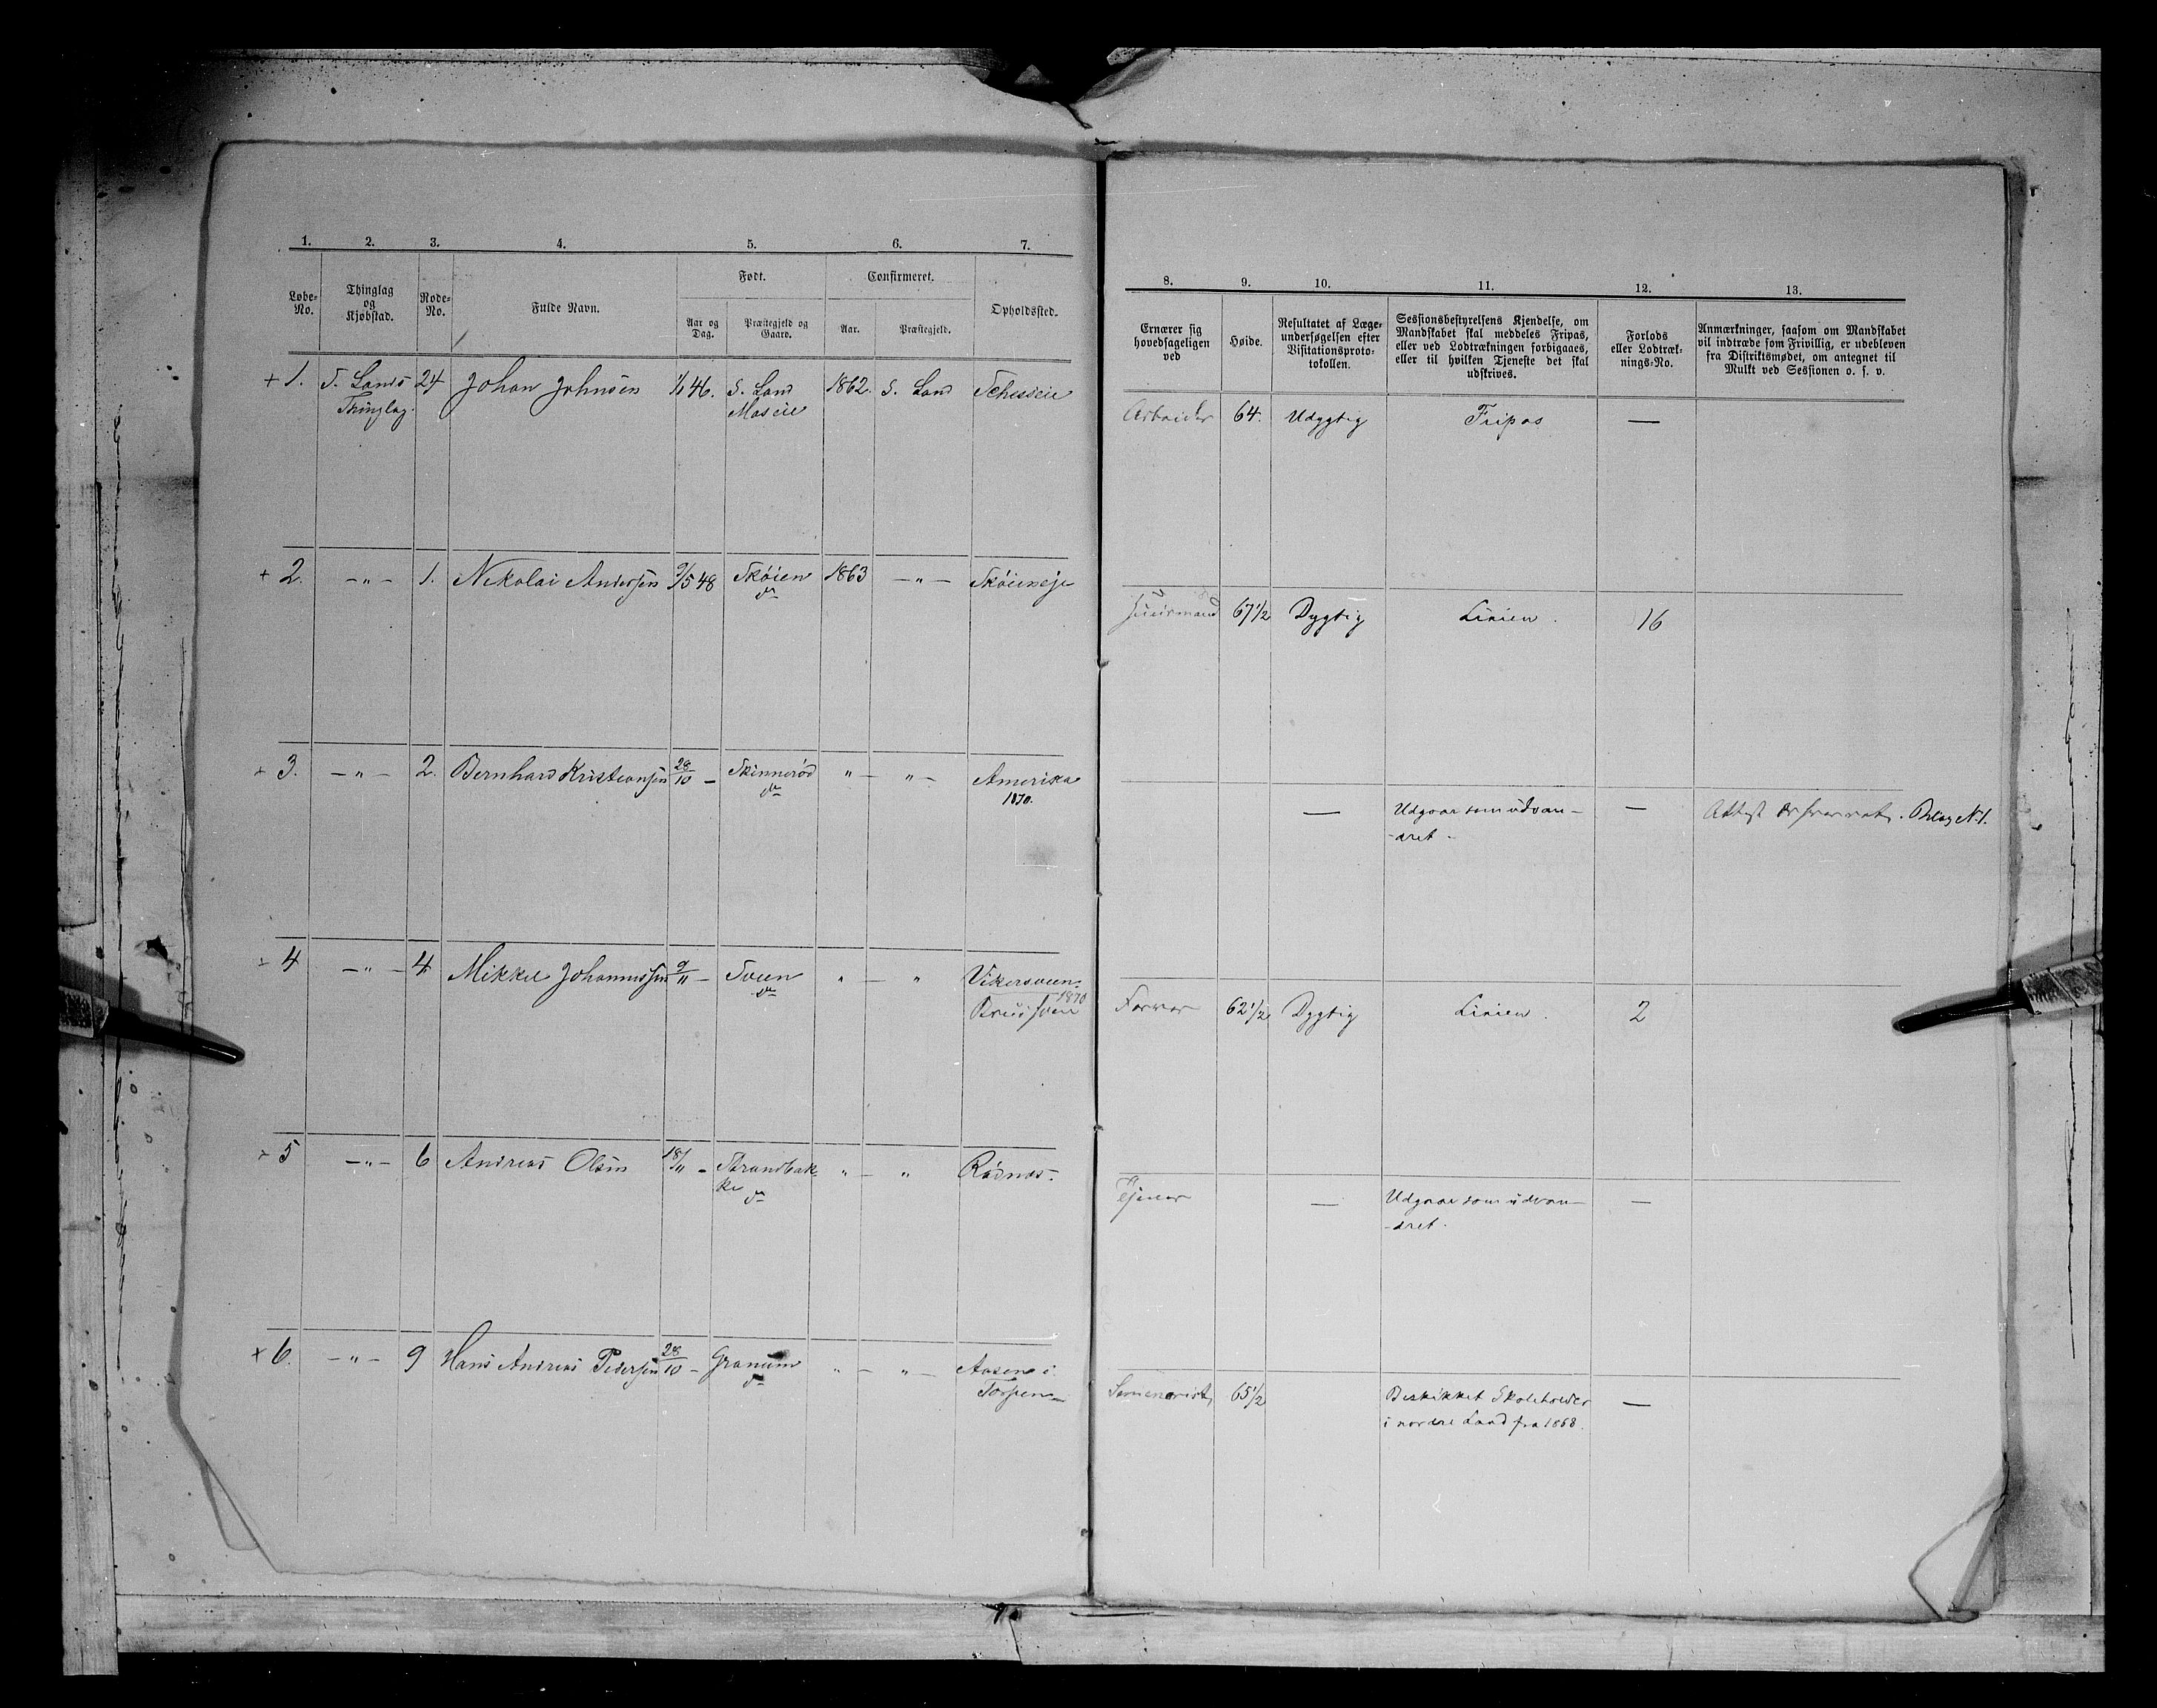 1. 2. 3. 4. 5. 6. 7.
Løbe-No. Thinglag og Kjøbstad. Rode-No. Fulde Navn. Født. Confirmeret. Opholdssted.
Aar og Dag. Præstegjeld og Gaard. Aar. Præstegjeld.
+ 1. S. Lands 24 Johan Johnsen 1/1 46. S. Land 1862. S. Land
Thinglag. Moseie
+ 2. -"- 1. Nikolai Andersen 9/5 48 Skøien 1863 -"- Skøieneje
do
3. -"- 2. Bernhard Kristiansen 28/10 - Skinnerød " - " - Amerika
do 1870.
4 -"- 4 Mikkel Johannessen 9/11 - Sveen " - " Vikersveen
do 1870
5 -"- 6 Andreas Olsen 18/11 - Strandbak- " - " Rødnæs.
ke
do
x 6. -"- 9 Hans Andreas Pedersen 28/10 - Granum " - " - Aasen i
do Torpen
8. 9. 10. 11. 12. 13.
Ernærer sig hovedsageligen ved
Høide.
Resultatet af Læge-
undersøgelsen efter
Visitationsproto-
tokollen.
Sessionsbestyrelsens Kjendelse, om
Mandskabet skal meddeles Fripas,
eller ved Lodtrækningen forbigaaes,
eller til hvilken Tjeneste det skal
udskrives.
Forlods
eller Lodtræk-
nings-No.
Anmærkninger, saasom om Mandskabet
vil indtræde som Frivillig, er udebleven
fra Distriktsmødet, om antegnet til
Mulkt ved Sessionen o. s. v.
Arbeider 64. Udygtig Fripas —
67 1/2 Dygtig Linien. 16
— Udgaar som udvan- — Attest Bilag N. 1.
-dret -
Farver 62 1/2 Dygtig Linien. 2
Tjener — Udgaar som udvan- —
-dret.
Semenarist, 65 1/2 Beskikket Skoleholder —
i nordre Land fra 1868.